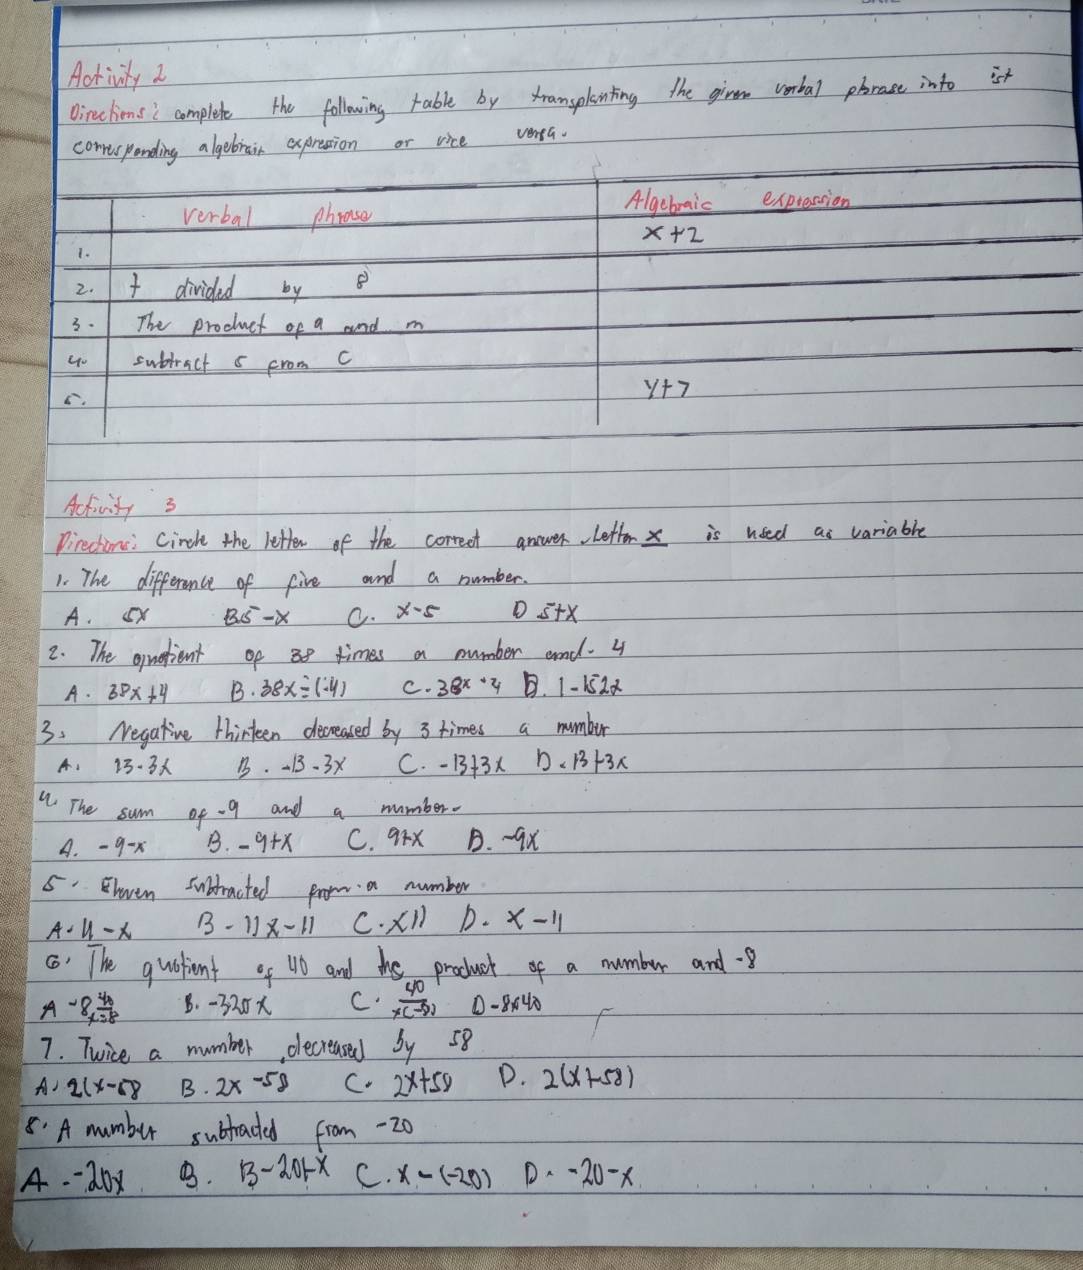 Activity 2
Directions: complete the following table by transplanting the given verbal phrase into ist
corresponding algebraic expresion or vice versa.
Verbal phrase Algebraic expression
1. x+2
2. f divided by 8
3. The product of a and m
4. subtract 5 from C
5. y+7
Activity 3
Directions: Circle the letter of the correct answer. Letter x is used as variable
1. The difference of five and a number.
A. 5x B 5-x C. x-5 D 5+x
2. The quotient of 38 times a number and -4
A. 38x+4 B. 38x÷(-4) C. 38x ÷4 D. 1-152x
3. Negative thirteen decreased by 3 times a number
A. 13-3x B. -13-3x C. -13+3x D. 13+3x
4. The sum of -9 and a number.
A. -9-x B. -9+x C. 9+x D. -9x
5. Eleven subtracted from a number
A. 11-x B-11x-11 C. x11 D. x-11
6. The quotient of 40 and the product of a number and -8
A B. -320x C. 40/x(-8) D-8x40
7. Twice a number decreased by 58
A. 2(x-58 B. 2x-58 C. 2x+58 D. 2(x+58)
8. A number subtracted from -20
A. -20x B. B-20+x C. x-(-20) D. -20-x